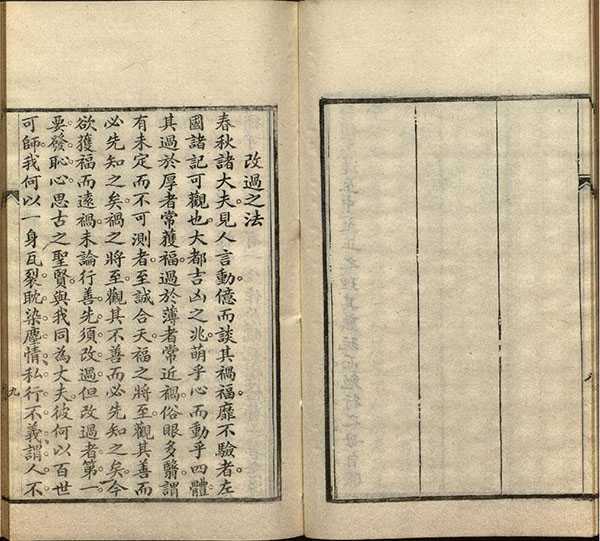 改過之法
春秋諸大夫見人言動。億而談其禍福。靡不驗者。左
國諸記可觀也。大都吉凶之兆萌乎心而動乎四體。
其過於厚者常獲福。過於薄者常近禍。俗眼多翳。謂
有未定而不可測者。至誠合天。福之將至。觀其善而
必先知之矣。禍之將至。觀其不善而必先知之矣。今
欲獲福而遠禍。未論行善。先須改過。但改過者。第一
要發恥心。思古之聖賢。與我同為丈夫。彼何以百世
可師。我何以一身瓦裂。耽染塵情。私行不義。謂人不
九